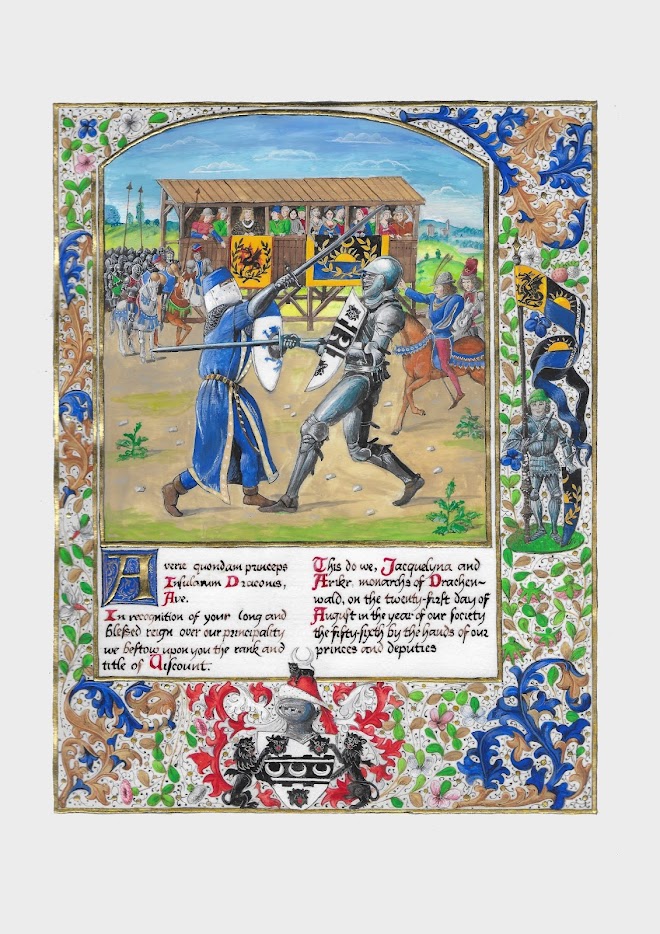 Averie quondam princeps
Insularum Draconis,
Ave.
In recognition of your long and
blessed reign over our principality
we bestow upon you the rank and
title of Viscount.
This do we, Jacquelyna and
Arikr, monarchs of Drachen-
wald, on the twenty-first day of
August in the year of our society
the fifty-sixth by the hands of our
princes and deputies